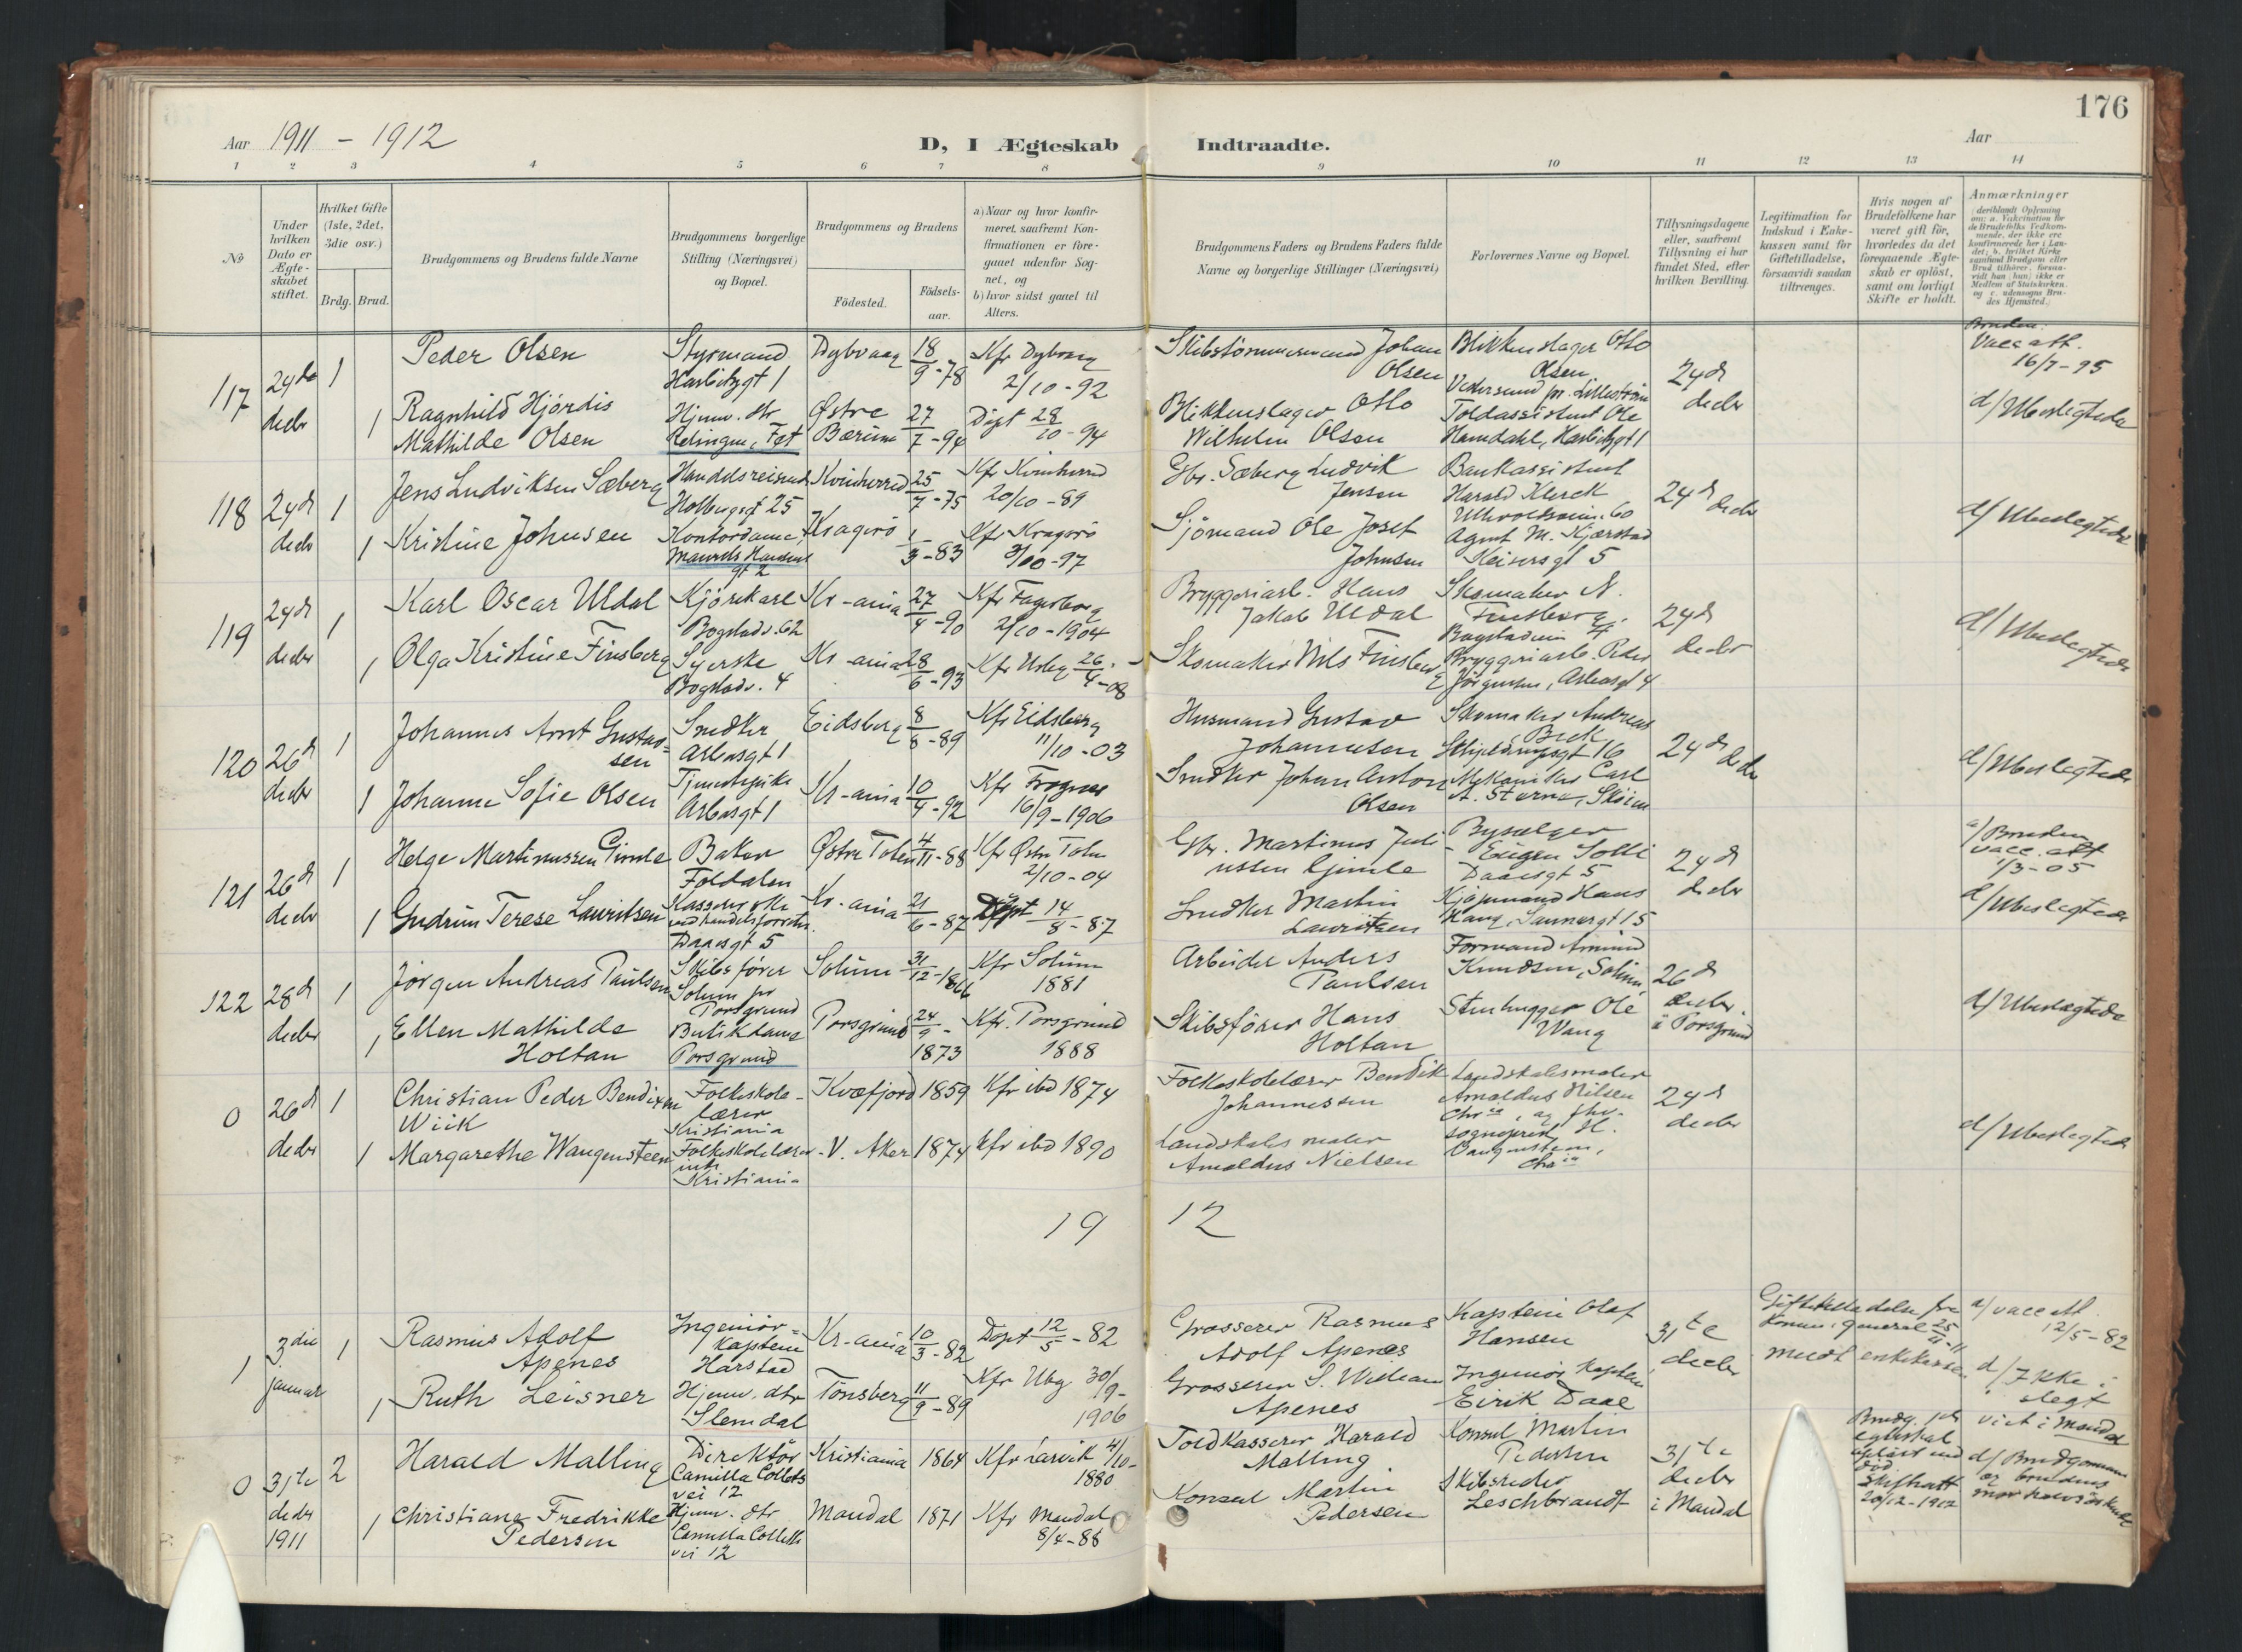 176
Aar 1911 - 1912
D, I Ægteskab Indtraadte.
Aar
1 2 3 4 5 6 7 8 9 10 11 12 13 14
No
Under hvilken Dato er Ægteskabet stiftet.
Hvilket Gifte (1ste, 2det, 3die osv.)
Brdg. Brud.
Brudgommens og Brudens fulde Navne
Brudgommens borgerlige Stilling (Næringsvei) og Bopæl.
Brudgommens og Brudens
Födested.
Födsels-aar.
a) Naar og hvor konfirmeret, saafremt Konfirmationen er foregaaet udenfor Sognet, og
b) hvor sidst gaaet til Alters.
Brudgommens Faders og Brudens Faders fulde Navne og borgerlige Stillinger (Næringsvei)
Forlovernes Navne og Bopæl.
Tillysningsdagene eller, saafremt Tillysning ei har fundet Sted, efter hvilken Bevilling.
Legitimation for Indskud i Enkekassen samt for Giftetilladelse, forsaavidt saadan tiltrænges.
Hvis nogen af Brudefolkene har været gift för, hvorledes da det foregaaende Ægteskab er oplöst, samt om lovligt Skifte er holdt.
Anmærkninger
117 24de decbr 1
Peder Olsen
Styrmand Dybvaag 18/9-78 Kfr Dybvaag 2/10-92
Skibstömmermand Johan Olsen
Blikkenslager Otto Olsen
24d decbr
Bruden: Vacc att. 16/7-95
1 Ragnhild Hjördis Mathilde Olsen
Hjemv. dtr Fet
Østre Bærum 27/7-94 Döpt 28/10-94
Blikkenslager Otto Wilhelm Olsen
Toldassistent Ole
d/ Ubeslegtede
118 24d decbr 1
Jens Ludviksen Sæberg
Handelsreisende Holbergsgt 25
Kvinherred 25/7-75 Kfr Kvinherred 20/10-89
Gbr. Sæberg Ludvik Jensen
Bankassistent Harald Klerck
24d decbr
d/ Ubeslegtede
1 Kristine Johnsen
Kontordame,
Kragerö 1/3-83 Kfr Kragerö
Sjömand Ole Josef Johnsen
Agent M. Kjærstad Keisersgt 5
119 24d decbr 1
Karl Oscar Uldal
Kjörekarl Bogstadv. 62
Kr-ania 27/4-90 Kfr Fagerborg 2/10-1904
Bryggeriarb. Hans Jakob Uldal
Skomaker N. Finsberg
24d decbr
d/ Ubeslegtede
1 Olga Kristine Finsberg
Syerske Bogstadv. 4
Kr-ania 28/6-93 Kfr 26/4-08
Skomaker Nils Finsberg
Bryggeriarb. Peder Jörgensen,
120 26d decbr 1
Johannes Arnt Gustavsen
Snedker Arbosgt 1
Eidsberg 8/8-89 Kfr Eidsberg 11/10-03
Husmand Gustav Johannesen
Skomaker Andreas Beck
24d decbr
d/ Ubeslegtede
1 Johanne Sofie Olsen
Tjenestepike Arbosgt 1
Kr-ania 10/4-92 Kfr Frogner 16/9-1906
Snedker Johan Anton Olsen
Mekaniker Carl A. Sterner, Sköien
121 26d decbr 1
Helge Martinussen Gimle
Baker Foldalen
Østre Toten 4/11-88 Kfr Østre Toten 2/10-04
Gbr. Martinus Juliussen Gjimle
Eugen Solli Daaesgt 5
24d decbr
a/ Bruden vacc. att 1/3-05
1 Gudrun Terese Lauritsen
Daaesgt 5
Kr-ania 21/6-87 Döpt 14/8-87
Snedker Martin Lauritzen
Kjöpmand Hans Haug, Sannergt 15
d/ Ubeslegtede
122 28d decbr 1
Jörgen Andreas Paulsen
Skibsförer Solum pr Porsgrund
Solum 31/12-1866 Kfr Solum 1881
Arbeider Anders Paulsen
Formand Amund Knudsen, Solum
26d decbr. i Porsgrund
d/ Ubeslægtede
1 Ellen Mathilde Holtan
Butikdame Porsgrund
Porsgrund 24/9-1873 Kfr. Porsgrund 1888
Skibsförer Hans Holtan
Stenhugger Ole Wang
0 26d decbr 1
Christian Peder Bendixen Wiik
Folkeskolelærer Kristiania
Kvæfjord 1859 Kfr ibd 1874
Folkeskolelærer Bendik Johannessen
Landskabsmaler Amaldus Nilsen
24d decbr
d/ Ubeslegtede
1 Margarethe Wangensteen
Folkeskolelærerinde Kristiania
V. Aker 1874 Kfr ibd 1890
Landskabsmaler Amaldus Nielsen
19 12
1 3die januar 1
Rasmus Adolf Apenes
Ingeniör-Kaptein Harstad
Kr-ania 10/3-82 Döpt 12/5-82
Grosserer Rasmus Adolf Apenes
Kaptein Olaf Hansen
31te decbr
Giftetilladelse fra Komm. general 25/11-11
a/ vacc att. 12/5-82
1 Ruth Leisner
Hjemv. dtr Slemdal
Tönsberg 11/9-89 Kfr Ubg 30/9-1906
Grosserer S. William Apenes
Ingeniör Kaptein Eirik Daae
d/ Ikke i slegt
0 31te decbr 1911 2
Harald Malling
Direktör Camilla Colletsvei 12
Kristiania 1864 Kfr Larvik 4/10-1880
Toldkasserer Harald Malling
Konsul Martin Pedersen
31te decbr i Mandal
Brudg. 1ste egteskab oplöst ved död
Skifteatt 20/12-1912
viet i Mandal
d/ Brudgommen og brudens mor halvsöskende
1 Christiane Fredrikke Pedersen
Hjemv. dtr Camilla Collettsvei 12
Mandal 1871 Kfr Mandal 8/4-88
Konsul Martin Pedersen
Skibsreder Leschbrandt